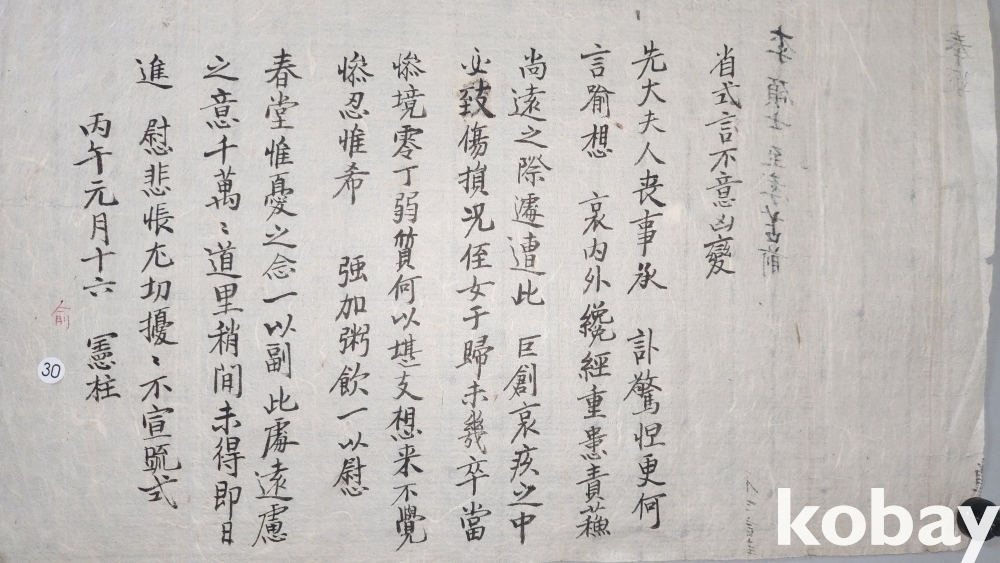 省式言不意凶變
先大夫人喪事承 訃驚怛更何
言踰想 哀內外纔經重患責蘓
尚遠之際遽遭此 巨創哀疚之中
必致傷損況侄女于歸未幾卒當
慘境零丁弱質何以堪支想来不覺
慘忍惟希 强加粥飲一以慰
春堂惟憂之念一以副此處遠慮
之意千萬〻道里稍間未得即日
進 慰悲悵尤切擾〻不宣疏式
丙午元月十六 憲柱
俞
30
kobay